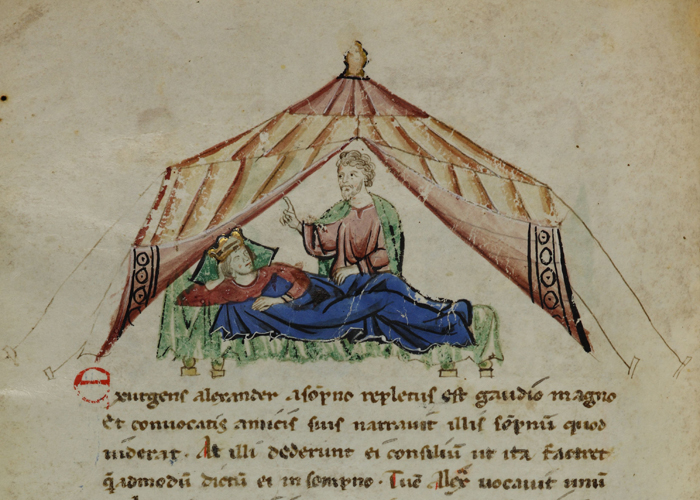 Exurgens alexander a sōpno repletus est gaudio magno
Et convocatis amicis suis narravit illis sōpnū quod
viderat. At illi dederunt ei consiliū ut ita faceret
q̄admodū dictū ei in sompno. Tūc Alex̄ vocavit unū